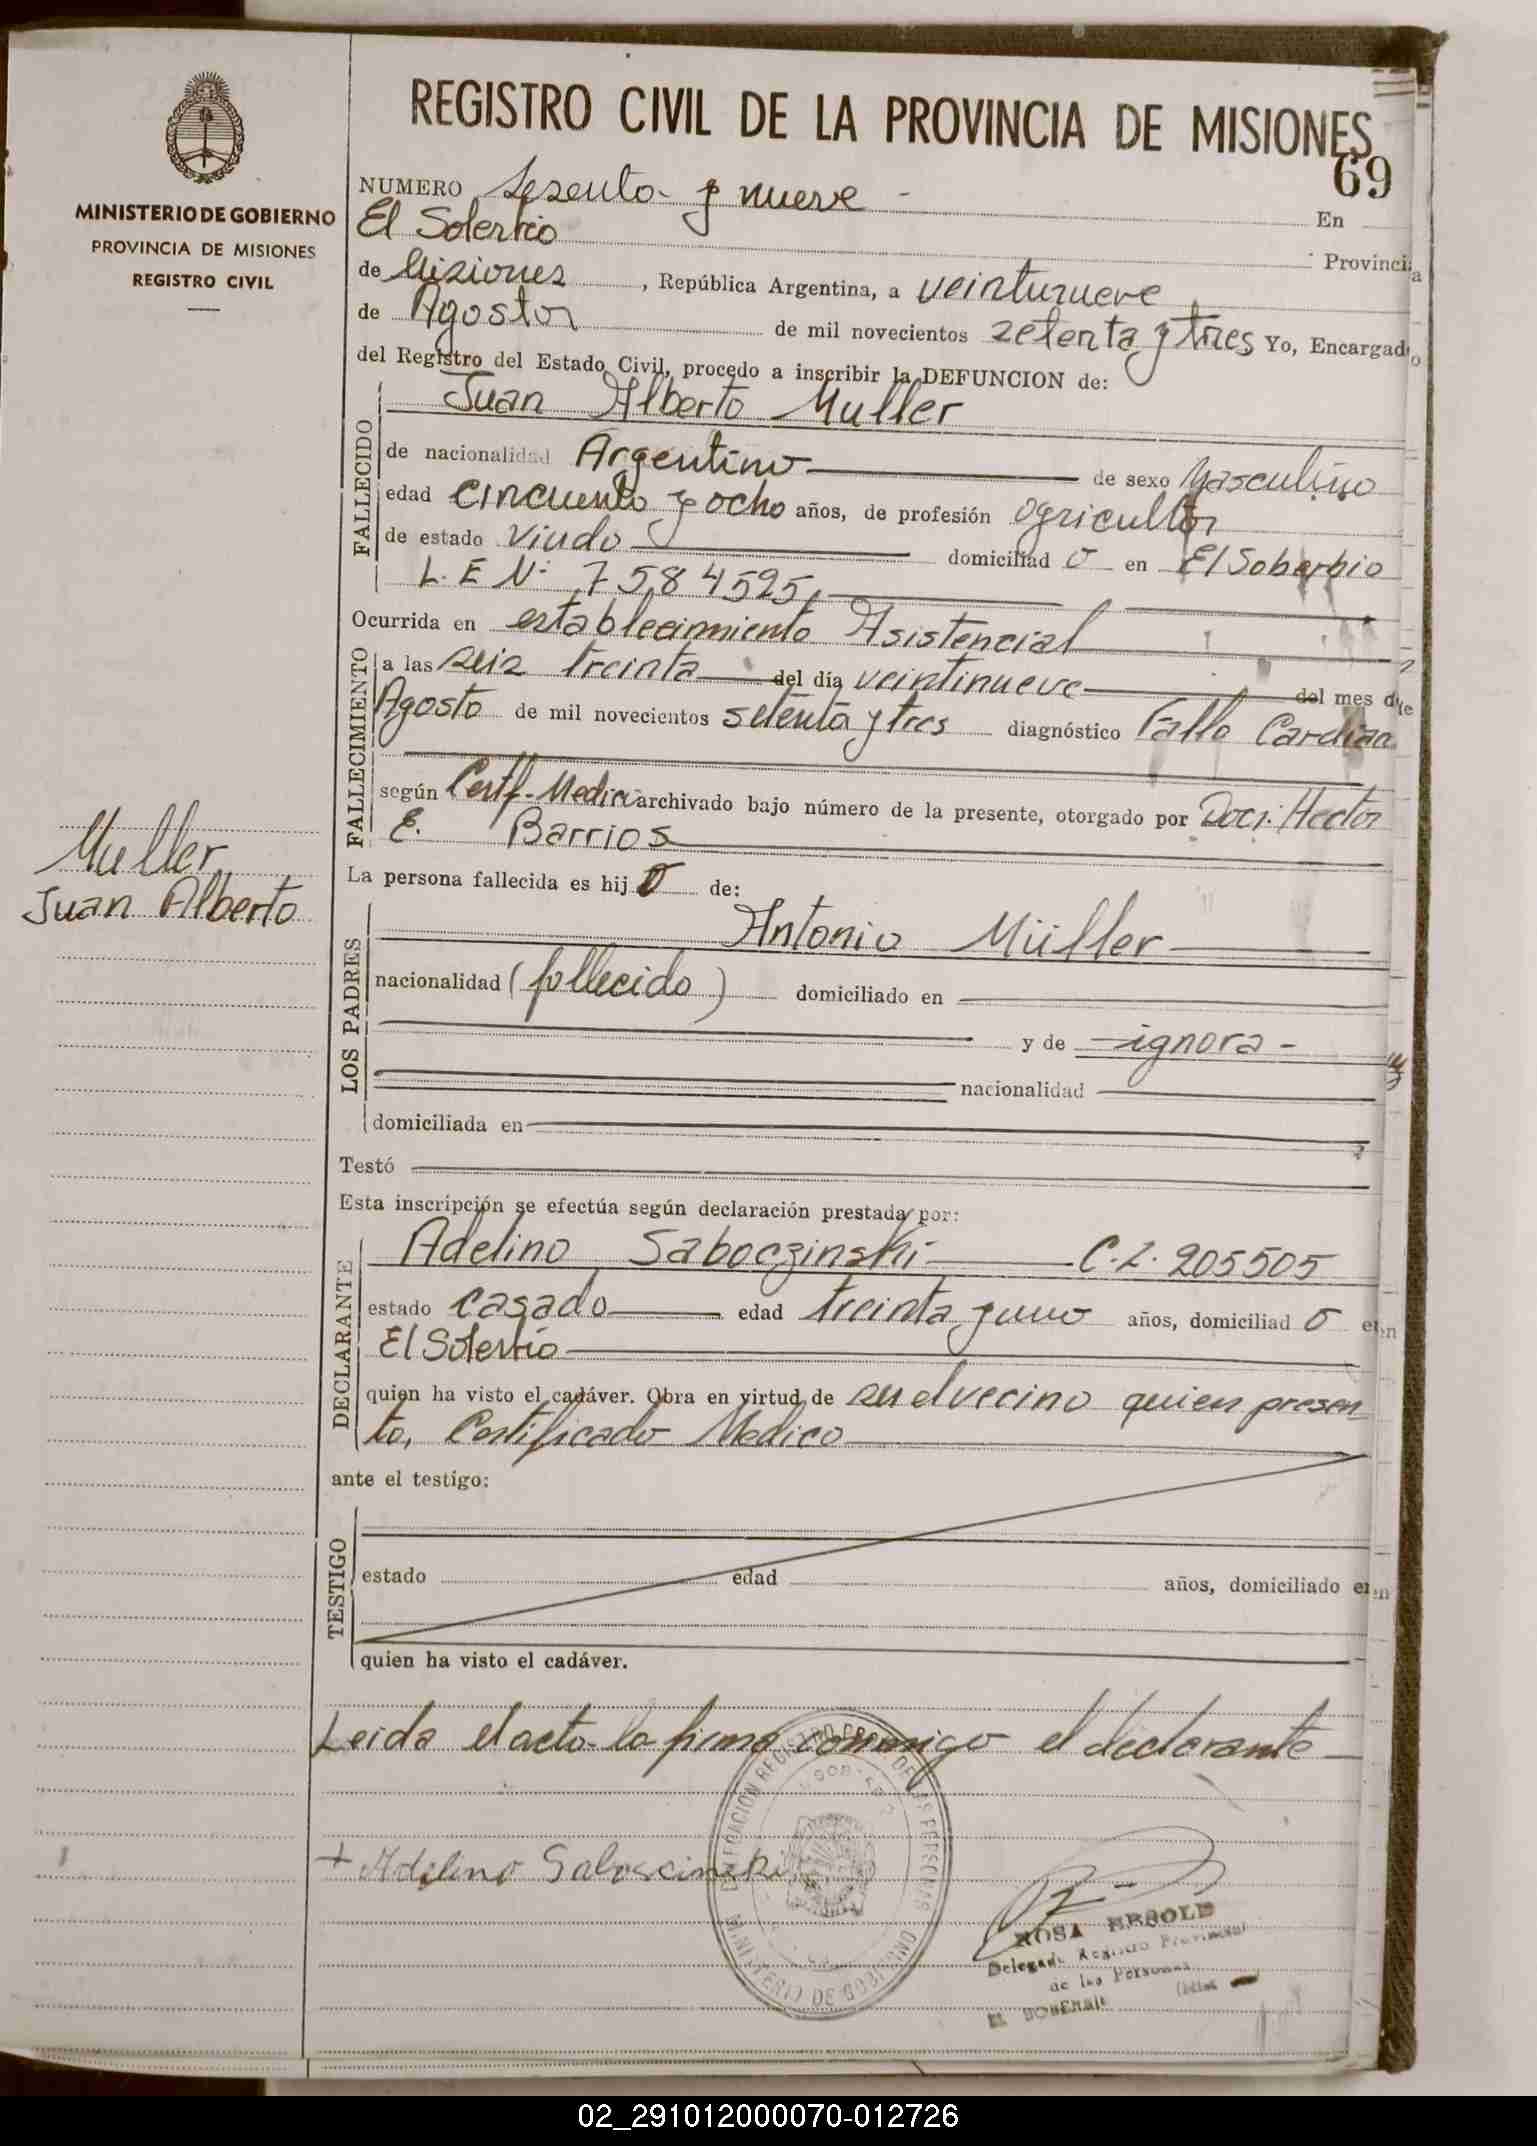 MINISTERIO DE GOBIERNO
PROVINCIA DE MISIONES
REGISTRO CIVIL
Muller
Juan Alberto
REGISTRO CIVIL DE LA PROVINCIA DE MISIONES
69
NUMERO Sesenta y nueve - En
El Soberbio Provincia
de Misiones, República Argentina, a veintinueve
de Agosto de mil novecientos setenta y tres Yo, Encargado
del Registro del Estado Civil, procedo a inscribir la DEFUNCION de:
FALLECIDO
Juan Alberto Muller
de nacionalidad Argentino de sexo Masculino
edad cincuenta y ocho años, de profesión agricultor
de estado viudo domiciliad o en El Soberbio
L. E Nº 7584525
Ocurrida en establecimiento Asistencial
FALLECIMIENTO
a las seis treinta del día veintinueve del mes de
Agosto de mil novecientos setenta y tres diagnóstico Fallo Cardiac
según Certf. Medico archivado bajo número de la presente, otorgado por Doct. Hector
E. Barrios
La persona fallecida es hij o de:
LOS PADRES
Antonio Müller
nacionalidad (fallecido) domiciliado en
y de - ignora -
nacionalidad
domiciliada en
Testó
Esta inscripción se efectúa según declaración prestada por:
DECLARANTE
Adelino Saboczinski C.I. 205505
estado casado edad treinta y uno años, domiciliad o en
El Soberbio
quien ha visto el cadáver. Obra en virtud de ser el vecino quien presen-
to, Certificado Medico
ante el testigo:
TESTIGO
estado edad años, domiciliado en
quien ha visto el cadáver.
Leida el acta la firma conmigo el declarante
+ Adelino Saboscinski
ROSA
Delegada Registro Provincial
de las Personas
EL SOBERBIO
02_291012000070-012726